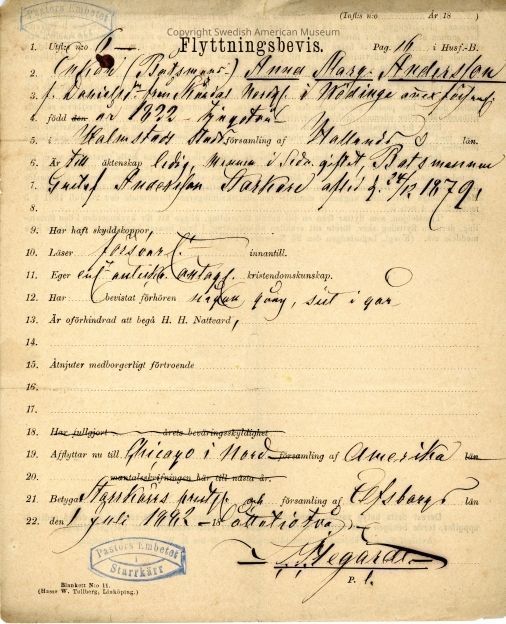 Copyright Swedish American Museum
Pastors Embetet
(Tafls n:o År 18 )
1. Utflt n:o 6 Flyttningsbevis. Pag. 16 i Husf.-B.
2. Enkan (Båtsmans-) Anna Marg. Andersson
3. f. Danielsd:r från i Nödinge
4. född den år 1822
5. i Halmstads Stads församling af Hallands
6. Är till äktenskap ledig, gift, Båtsmannen
7. Gustaf Andersson Starkare afled d. 24/12 1879,
8.
9. Har haft skyddskoppor,
10. Läser försvarl. innantill.
11. Eger antagl. kristendomskunskap.
12. Har bevistat förhören någon gång, sist i går
13. Är oförhindrad att begå H. H. Nattvard,
14.
15. Åtnjuter medborgerligt förtroende
16.
17.
18. Har fullgjort årets beväringsskyldighet
19. Afflyttar nu till Chicago i Nord församling af Amerika län
20. mantalsskrifningen här till nästa år.
21. Betygar Starrkärrs församling af Elfsborgs län
22. den 1 Juli 1882 18 åttatiotvå
Pastors Embetet
i
Starrkärr
Blankett N:o 11.
(Hanss W. Tullberg, Linköping.)
P. l.